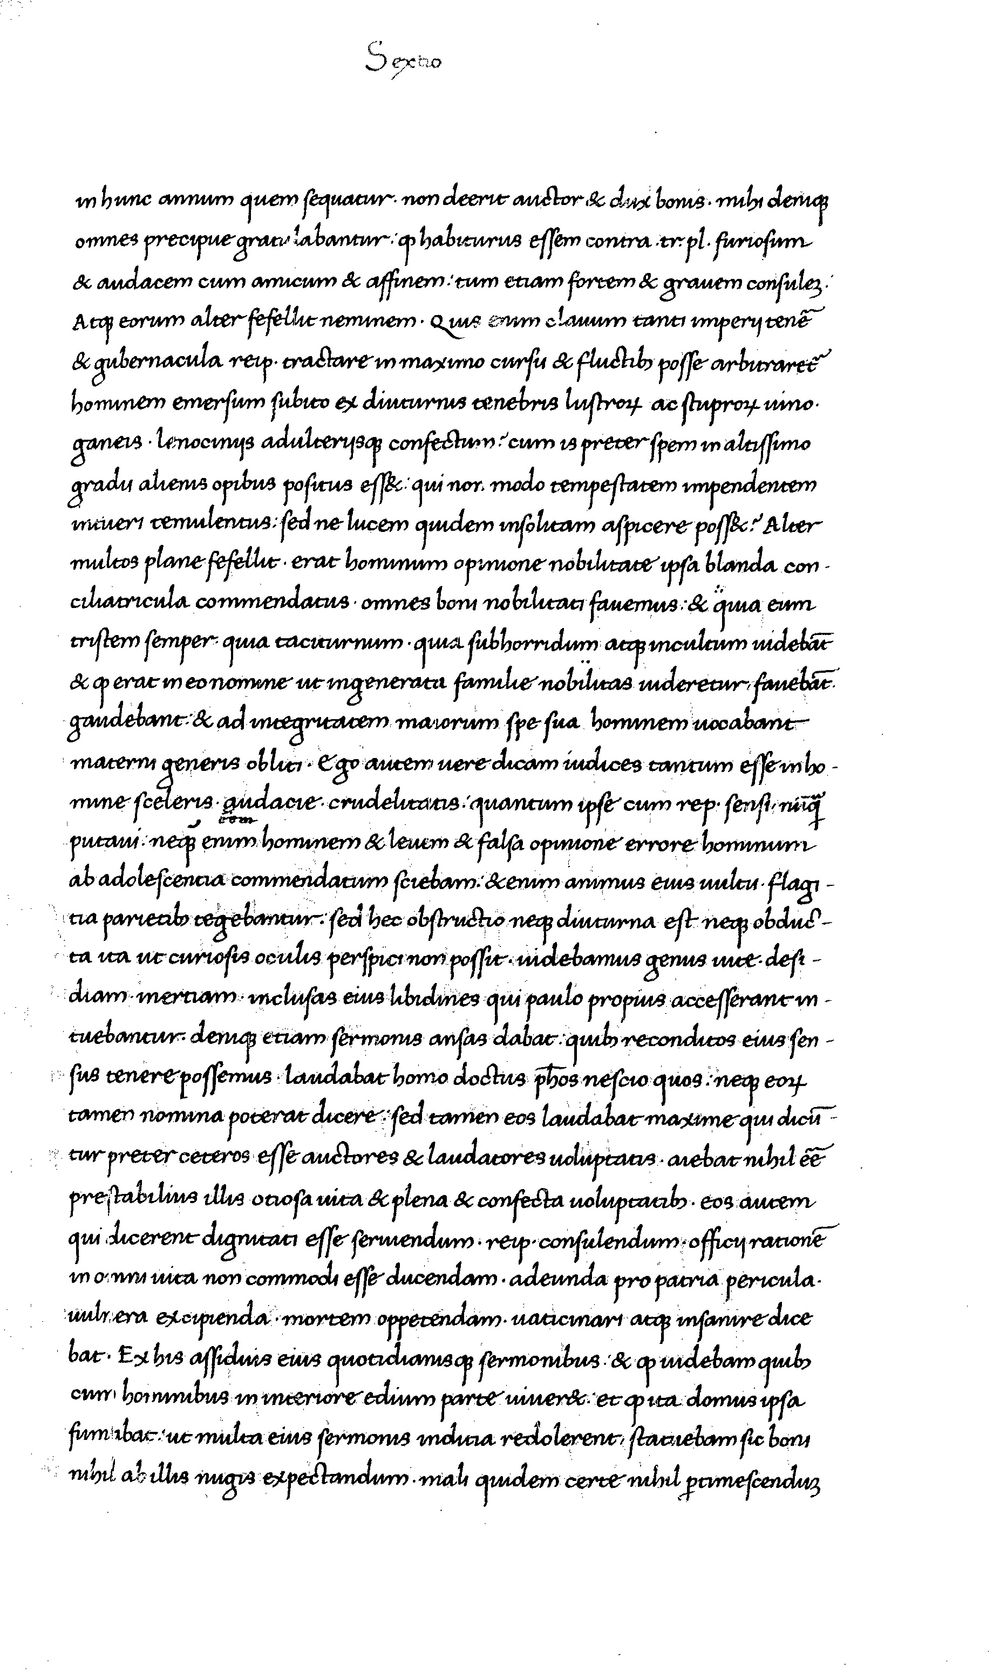 Sextio
in hunc annum quem sequatur · non deerit auctor & dux bonis · mihi deniqꝫ
omnes precipue gratulabantur : ꝙ habiturus essem contra · tr · pl · furiosum
& audacem cum amicum & affinem : tum etiam fortem & grauem consulēꝫ :
Atqꝫ eorum alter fefellit neminem · Quis enim clauum tanti imperij tenē
& gubernacula reip · tractare in maximo cursu & fluctibꝫ posse arbitraret᷑
hominem emersum subito ex diuturnis tenebris lustroꝝ ac stuproꝝ uino ·
ganeis · lenocinijs adulterijsqꝫ confectum ? cum is preter spem in altissimo
gradu alienis opibus positus ess& : qui non modo tempestatem impendentem
intueri temulentus : sed ne lucem quidem insolitam aspicere poss& ? Alter
multos plane fefellit · erat hominum opinione nobilitate ipsa blanda con-
ciliatricula commendatus · omnes boni nobilitati fauemus : & quia eum
tristem semper · quia taciturnum · quia subhorridum atqꝫ incultum uidebāt
& ꝙ erat in eo nomine ut ingenerata familie nobilitas uideretur, fauebāt ·
gaudebant : & ad integritatem maiorum spe sua hominem uocabant
materni generis obliti · Ego autem uere dicam iudices tantum esse in ho-
mine sceleris · audacie · crudelitatis : quantum ipse cum rep · sensi, nūqᷓ
putaui : neqꝫ enim eom hominem & leuem & falsa opinione errore hominum
ab adolescentia commendatum sciebam : & enim animus eius uultu · flagi-
tia parietibꝫ tegebantur : sed hec obstructio neqꝫ diuturna est neqꝫ obduc-
ta ita ut curiosis oculis perspici non possit · uidebamus genus uite · desi-
diam · inertiam · inclusas eius libidines qui paulo propius accesserant in-
tuebantur · deniqꝫ etiam sermonis ansas dabat : quibꝫ reconditos eius sen-
sus tenere possemus · laudabat homo doctus ph̄os nescio quos : neqꝫ eoꝝ
tamen nomina poterat dicere : sed tamen eos laudabat maxime qui dicū-
tur preter ceteros esse auctores & laudatores uoluptatis · aiebat nihil eē
prestabilius illis otiosa uita & plena & confecta uoluptatibꝫ · eos autem
qui dicerent dignitati esse seruiendum · reip · consulendum · officij rationē
in omni uita non commodi esse ducendam · adeunda pro patria pericula ·
uulnera excipienda · mortem oppetendam · uaticinari atqꝫ insanire dice
bat · Ex his assiduis eius quotidianisqꝫ sermonibus : & ꝙ uidebam quibꝫ
cum hominibus in interiore edium parte uiuer& : et ꝙ ita domus ipsa
fumabat : ut multa eius sermonis inditia redolerent, statuebam sic boni
nihil ab illis nugis expectandum · mali quidem certe nihil ꝑtimescenduꝫ